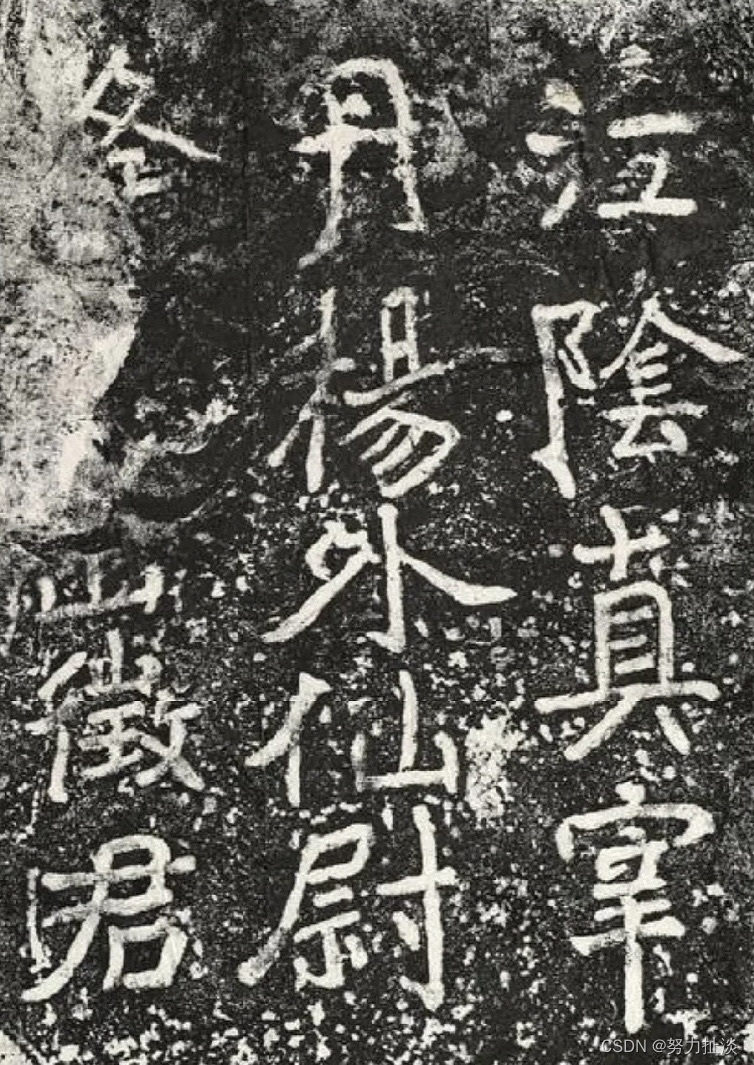 江陰真宰
丹楊外仙尉
山徵君
CSDN @努力扯淡